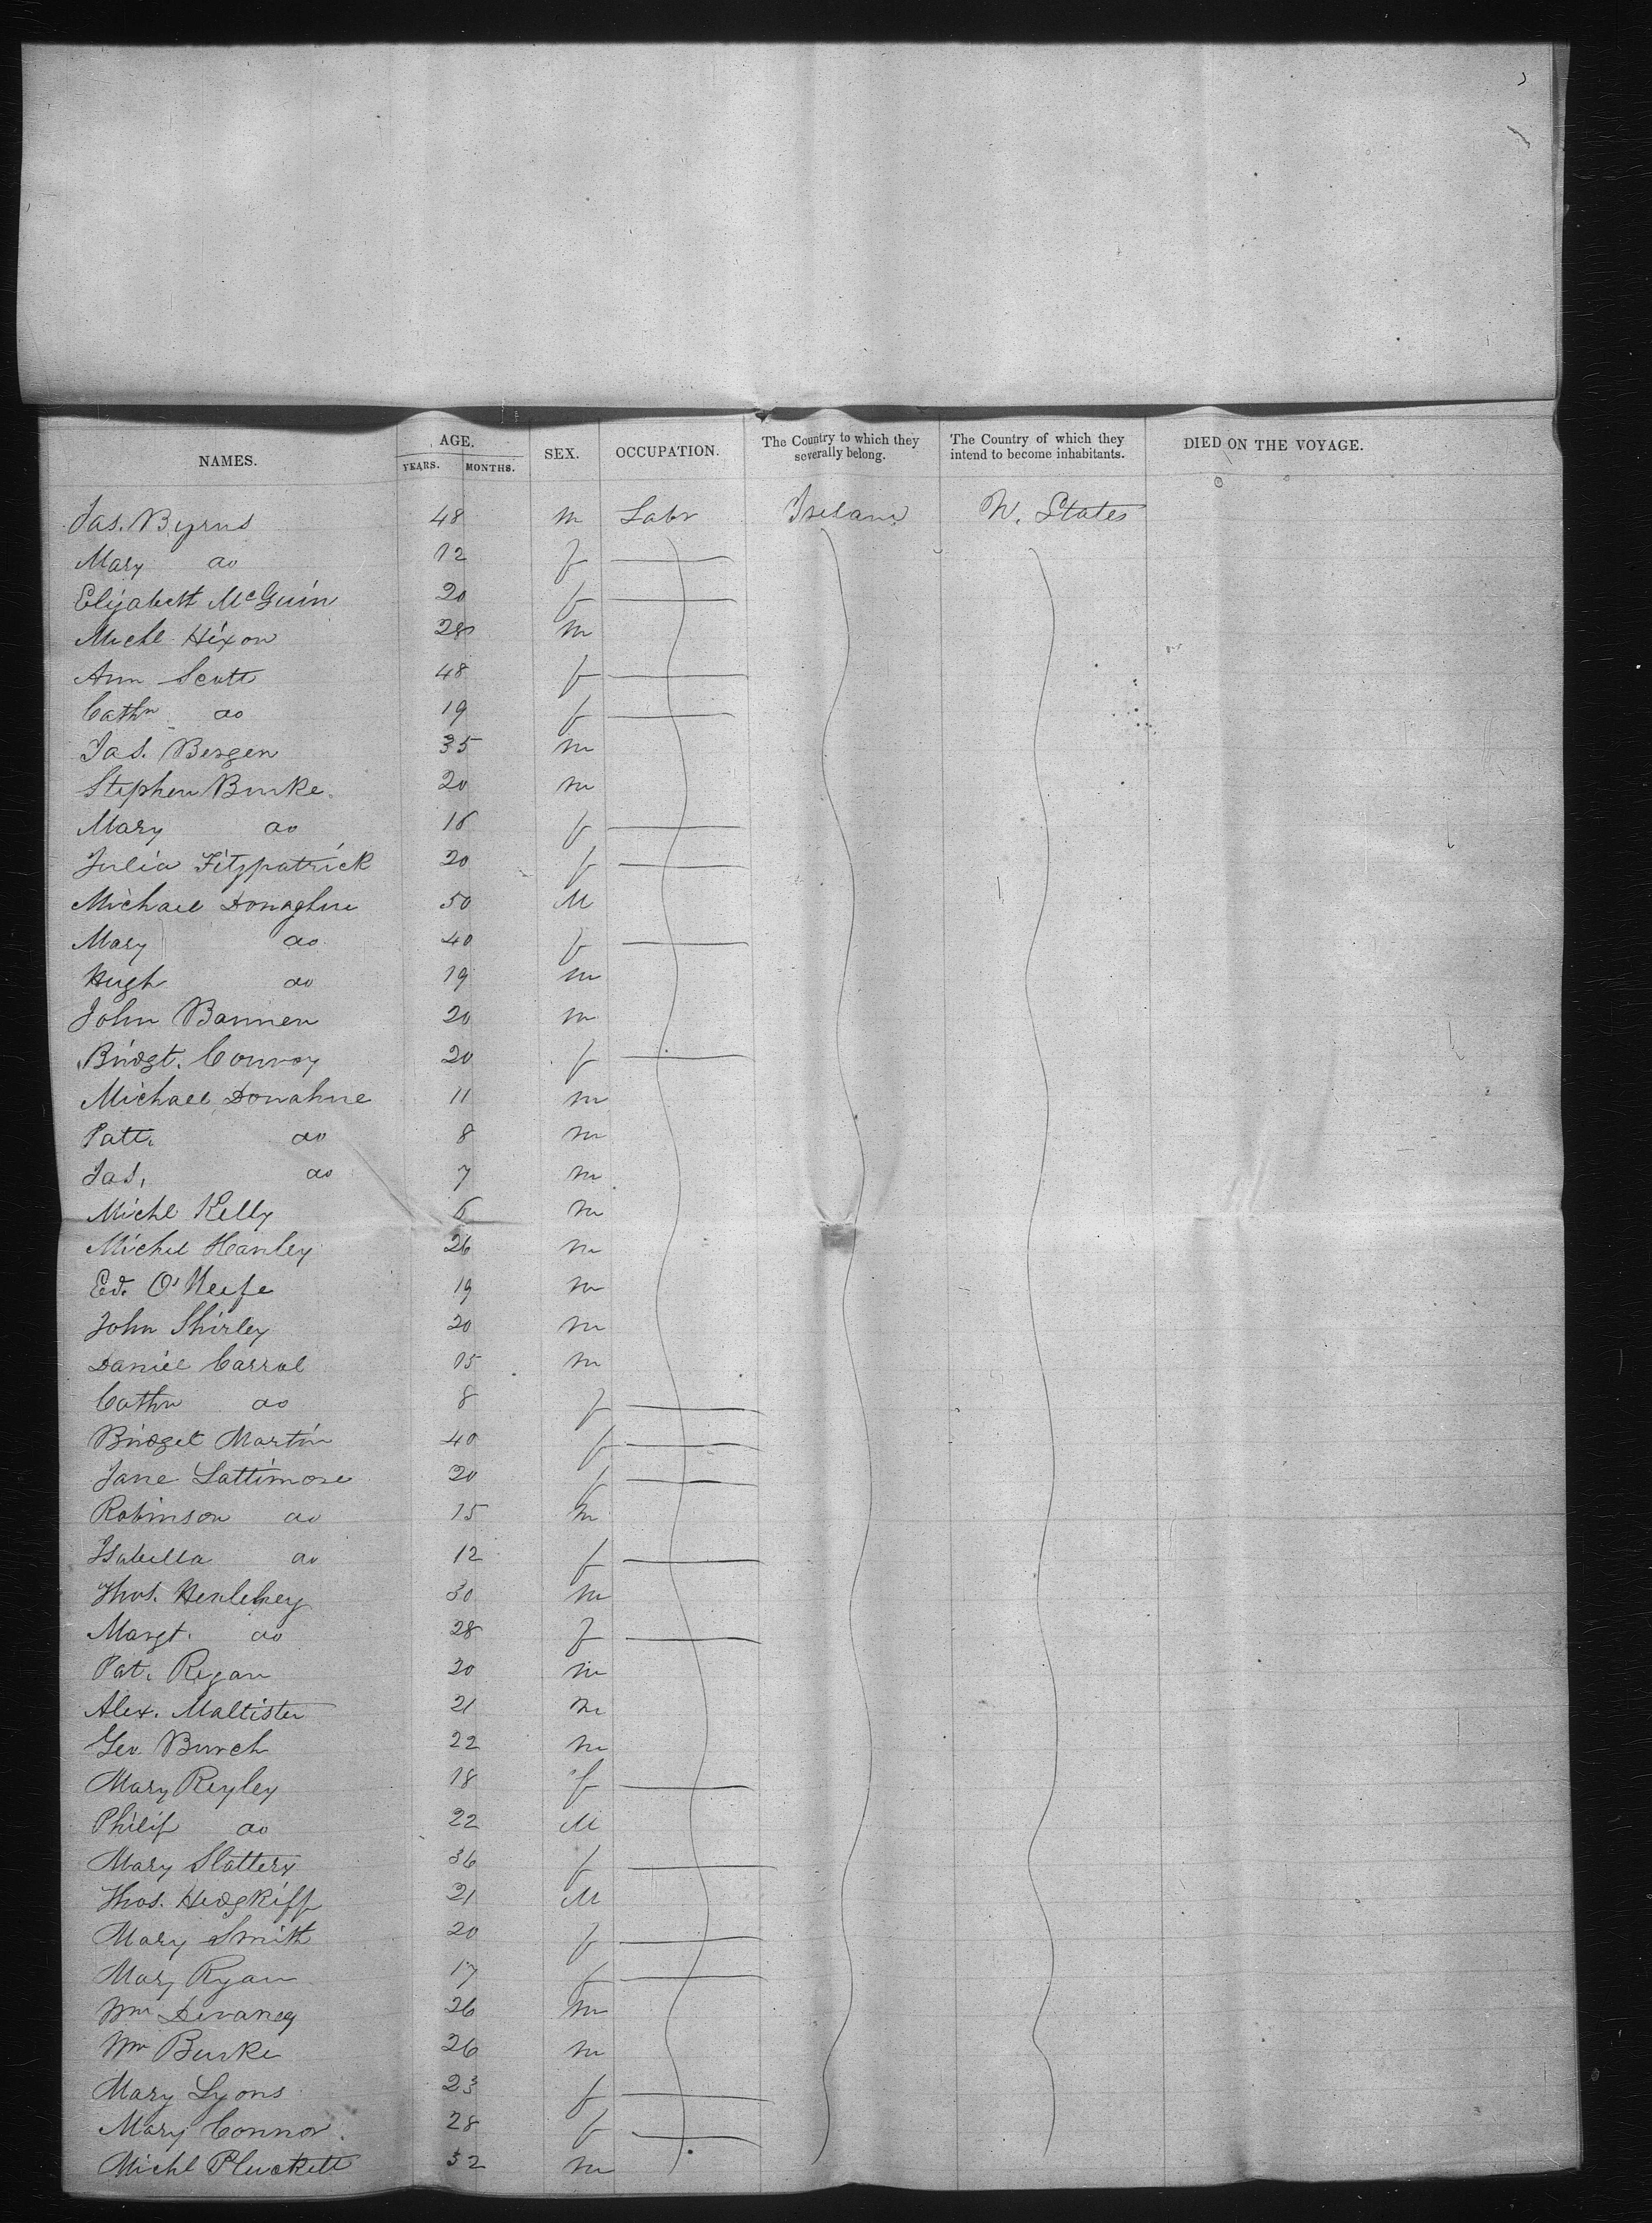 NAMES. AGE. YEARS. MONTHS. SEX. OCCUPATION. The Country to which they severally belong. The Country of which they intend to become inhabitants. DIED ON THE VOYAGE.
Jas. Byrns 48 m Labr Ireland U. States
Mary do 12 f
Elizabeth McGuin 20 f
Michl Hixon 28 m
Ann Scott 48 f
Cathn do 19 f
Jas. Bergen 35 m
Stephen Burke 20 m
Mary do 18 f
Julia Fitzpatrick 20 f
Michael Donaghue 50 M
Mary do 40 f
Hugh do 19 m
John Bannen 20 m
Bridgt. Conroy 20 f
Michael Donahue 11 m
Patt. do 8 m
Jas. do 7 m
Michl Kelly 6 m
Michl Hanley 26 m
Ed. O'Keefe 19 m
John Shirley 20 m
Daniel Carrol 15 m
Cathn do 8 f
Bridget Martin 40 f
Jane Lattimore 20 f
Robinson do 15 m
Isabella do 12 f
Thos. 30 m
Margt. do 28 f
Pat. Regan 20 m
Alex. Maltister 21 m
Geo. Burch 22 m
Mary Reyley 18 f
Philip do 22 M
Mary Slattery 36 f
Thos. Hedgkiff 21 M
Mary Smith 20 f
Mary Ryan 17 f
Wm Devaney 26 m
Wm Burke 26 m
Mary Lyons 23 f
Mary Connor 28 f
Michl Pluckett 32 m